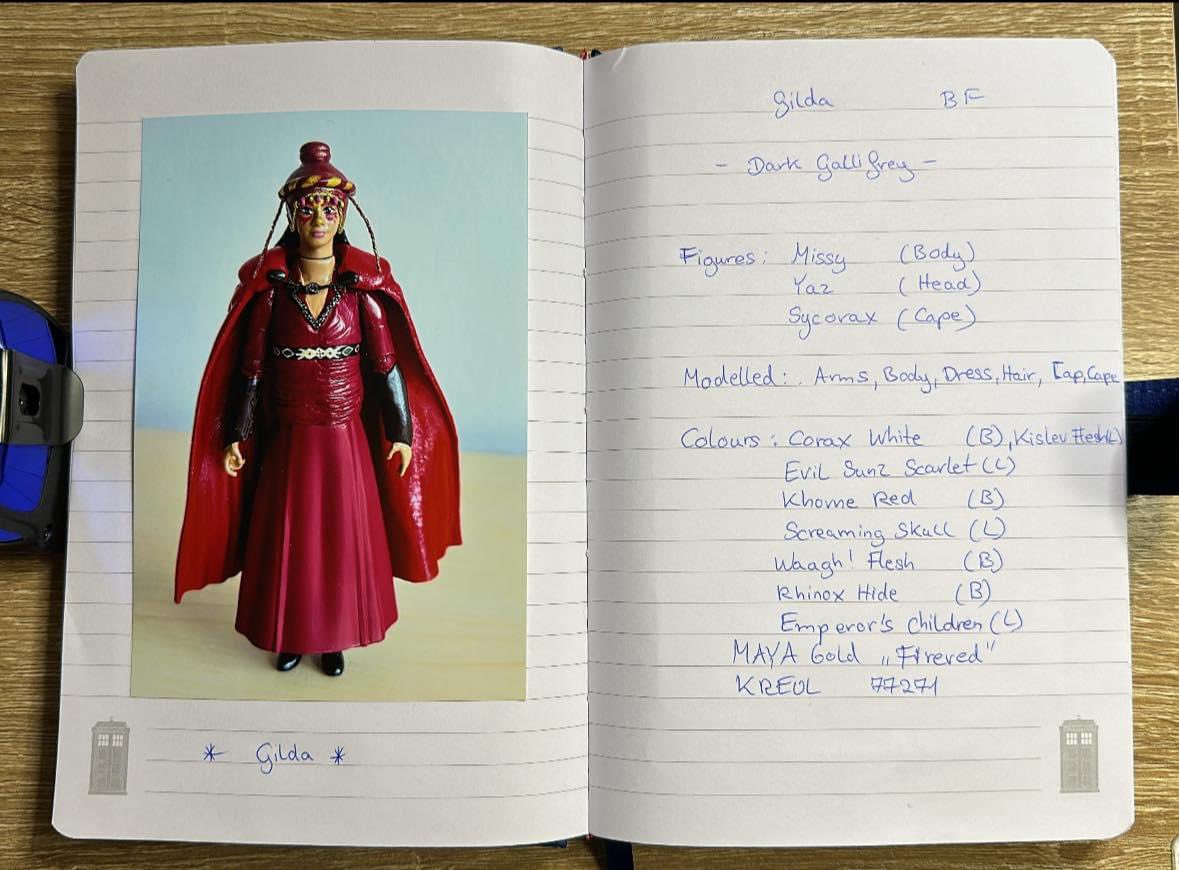 * Gilda *
Gilda BF
- Dark Gallifrey -
Figures: Missy (Body)
Yaz (Head)
Sycorax (Cape)
Modelled: Arms, Body, Dress, Hair, Cap, Cape
Colours: Corax White (B), Kislev Flesh (L)
Evil Sunz Scarlet (L)
Khorne Red (B)
Screaming Skull (L)
Waagh! Flesh (B)
Rhinox Hide (B)
Emperor's Children (L)
MAYA Gold „Firered"
KREUL 77271